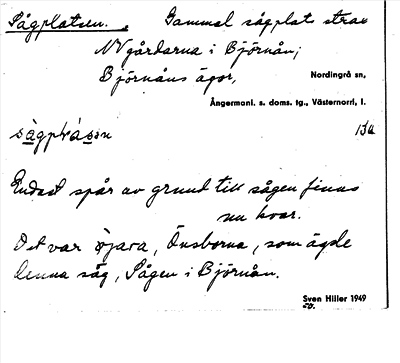 Sågplatsen. Gammal sågplats strax
NV gårdarna i Björnån;
Björnåns ägor, Nordingrå sn,
Ångermanl. s. doms. tg., Västernorrl. l.
Endast spår av grund till sågen finns
nu kvar.
Det var Önsborna, som ägde
denna såg, Sågen i Björnån.
Sven Hiller 1949